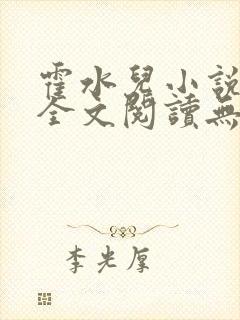 霍水兒小說
全文閱讀無
李光厚